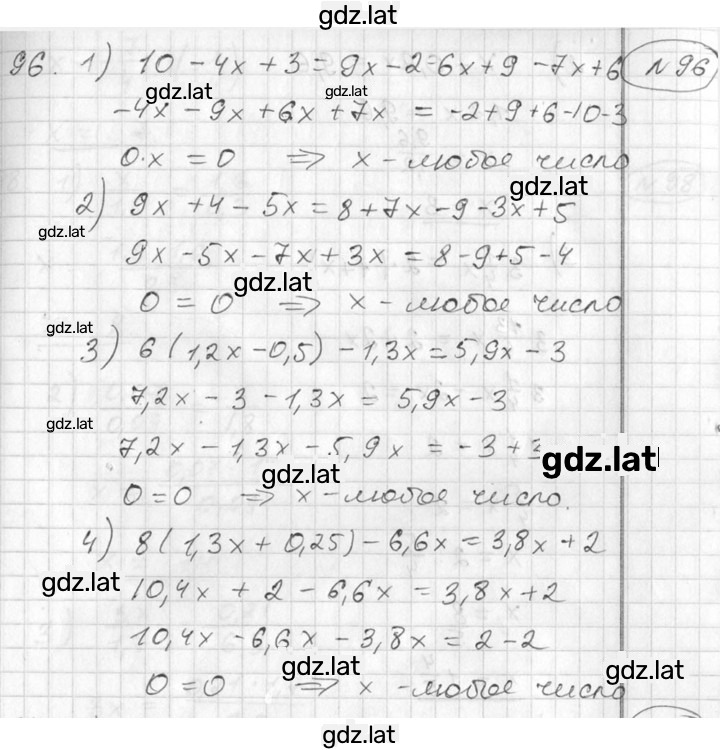 gdz.lat
96. 1) 10 - 4x + 3 = 9x - 2 - 6x + 9 - 7x + 6 №96
gdz.lat gdz.lat
-4x - 9x + 6x + 7x = -2 + 9 + 6 - 10 - 3
0·x = 0 ⇒ x - любое число
gdz.lat
2) 9x + 4 - 5x = 8 + 7x - 9 - 3x + 5
gdz.lat
9x - 5x - 7x + 3x = 8 - 9 + 5 - 4
gdz.lat
0 = 0 ⇒ x - любое число
gdz.lat
3) 6(1,2x - 0,5) - 1,3x = 5,9x - 3
gdz.lat
7,2x - 3 - 1,3x = 5,9x - 3
gdz.lat
7,2x - 1,3x - 5,9x = -3 + 3
gdz.lat
gdz.lat
0 = 0 ⇒ x - любое число.
4) 8(1,3x + 0,25) - 6,6x = 3,8x + 2
gdz.lat gdz.lat
10,4x + 2 - 6,6x = 3,8x + 2
10,4x - 6,6x - 3,8x = 2 - 2
gdz.lat gdz.lat
0 = 0 ⇒ x - любое число
gdz.lat